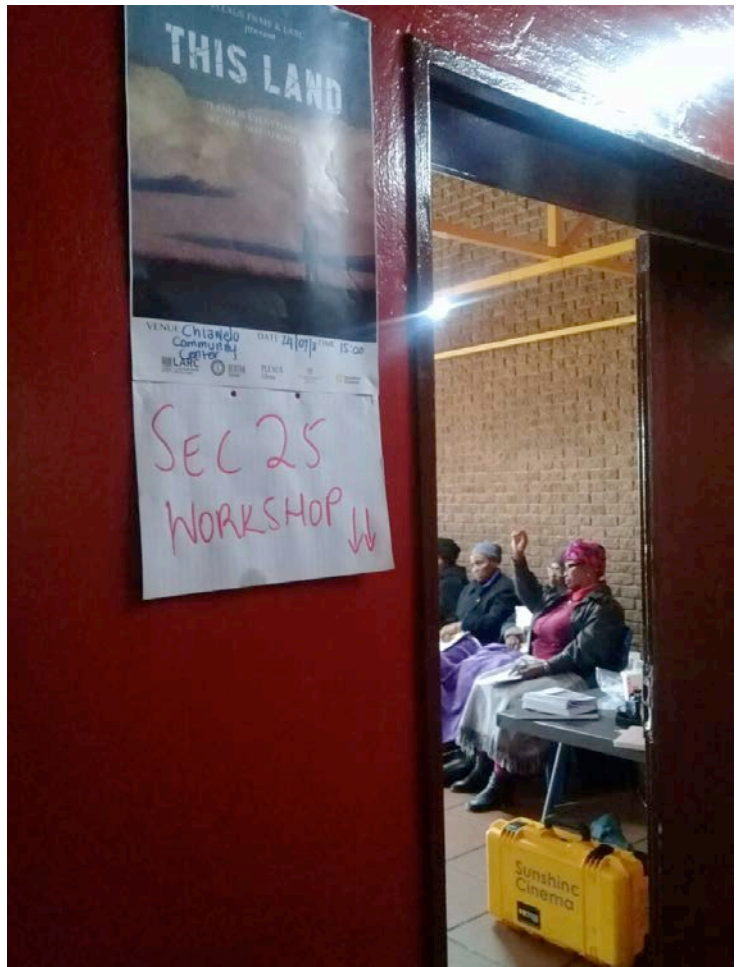 PLEAGE FILMS & LARC
present
THIS LAND
VENUE Chiawelo
Community
Center
DATE 24/07/
TIME 15:00
LARC
PLEAGE
SEC 25
WORKSHOP
Sunshine
Cinema